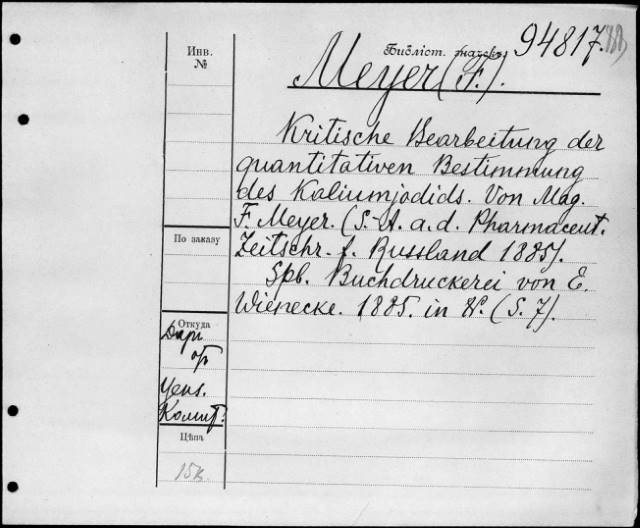 Инв.
№
Библіот. значекъ 94817.
Meyer (F.).
Kritische Bearbeitung der
quantitativen Bestimmung
des Kaliumjodids. Von Mag.
F. Meyer. (S.-A. a. d. Pharmaceut.
Zeitschr. f. Russland 1885).
Spb. Buchdruckerei von E.
Wienecke. 1885. in 8º. (S. 7).
По заказу
Откуда
Даръ
отъ
Ценз.
Комит.
Цѣна
15к